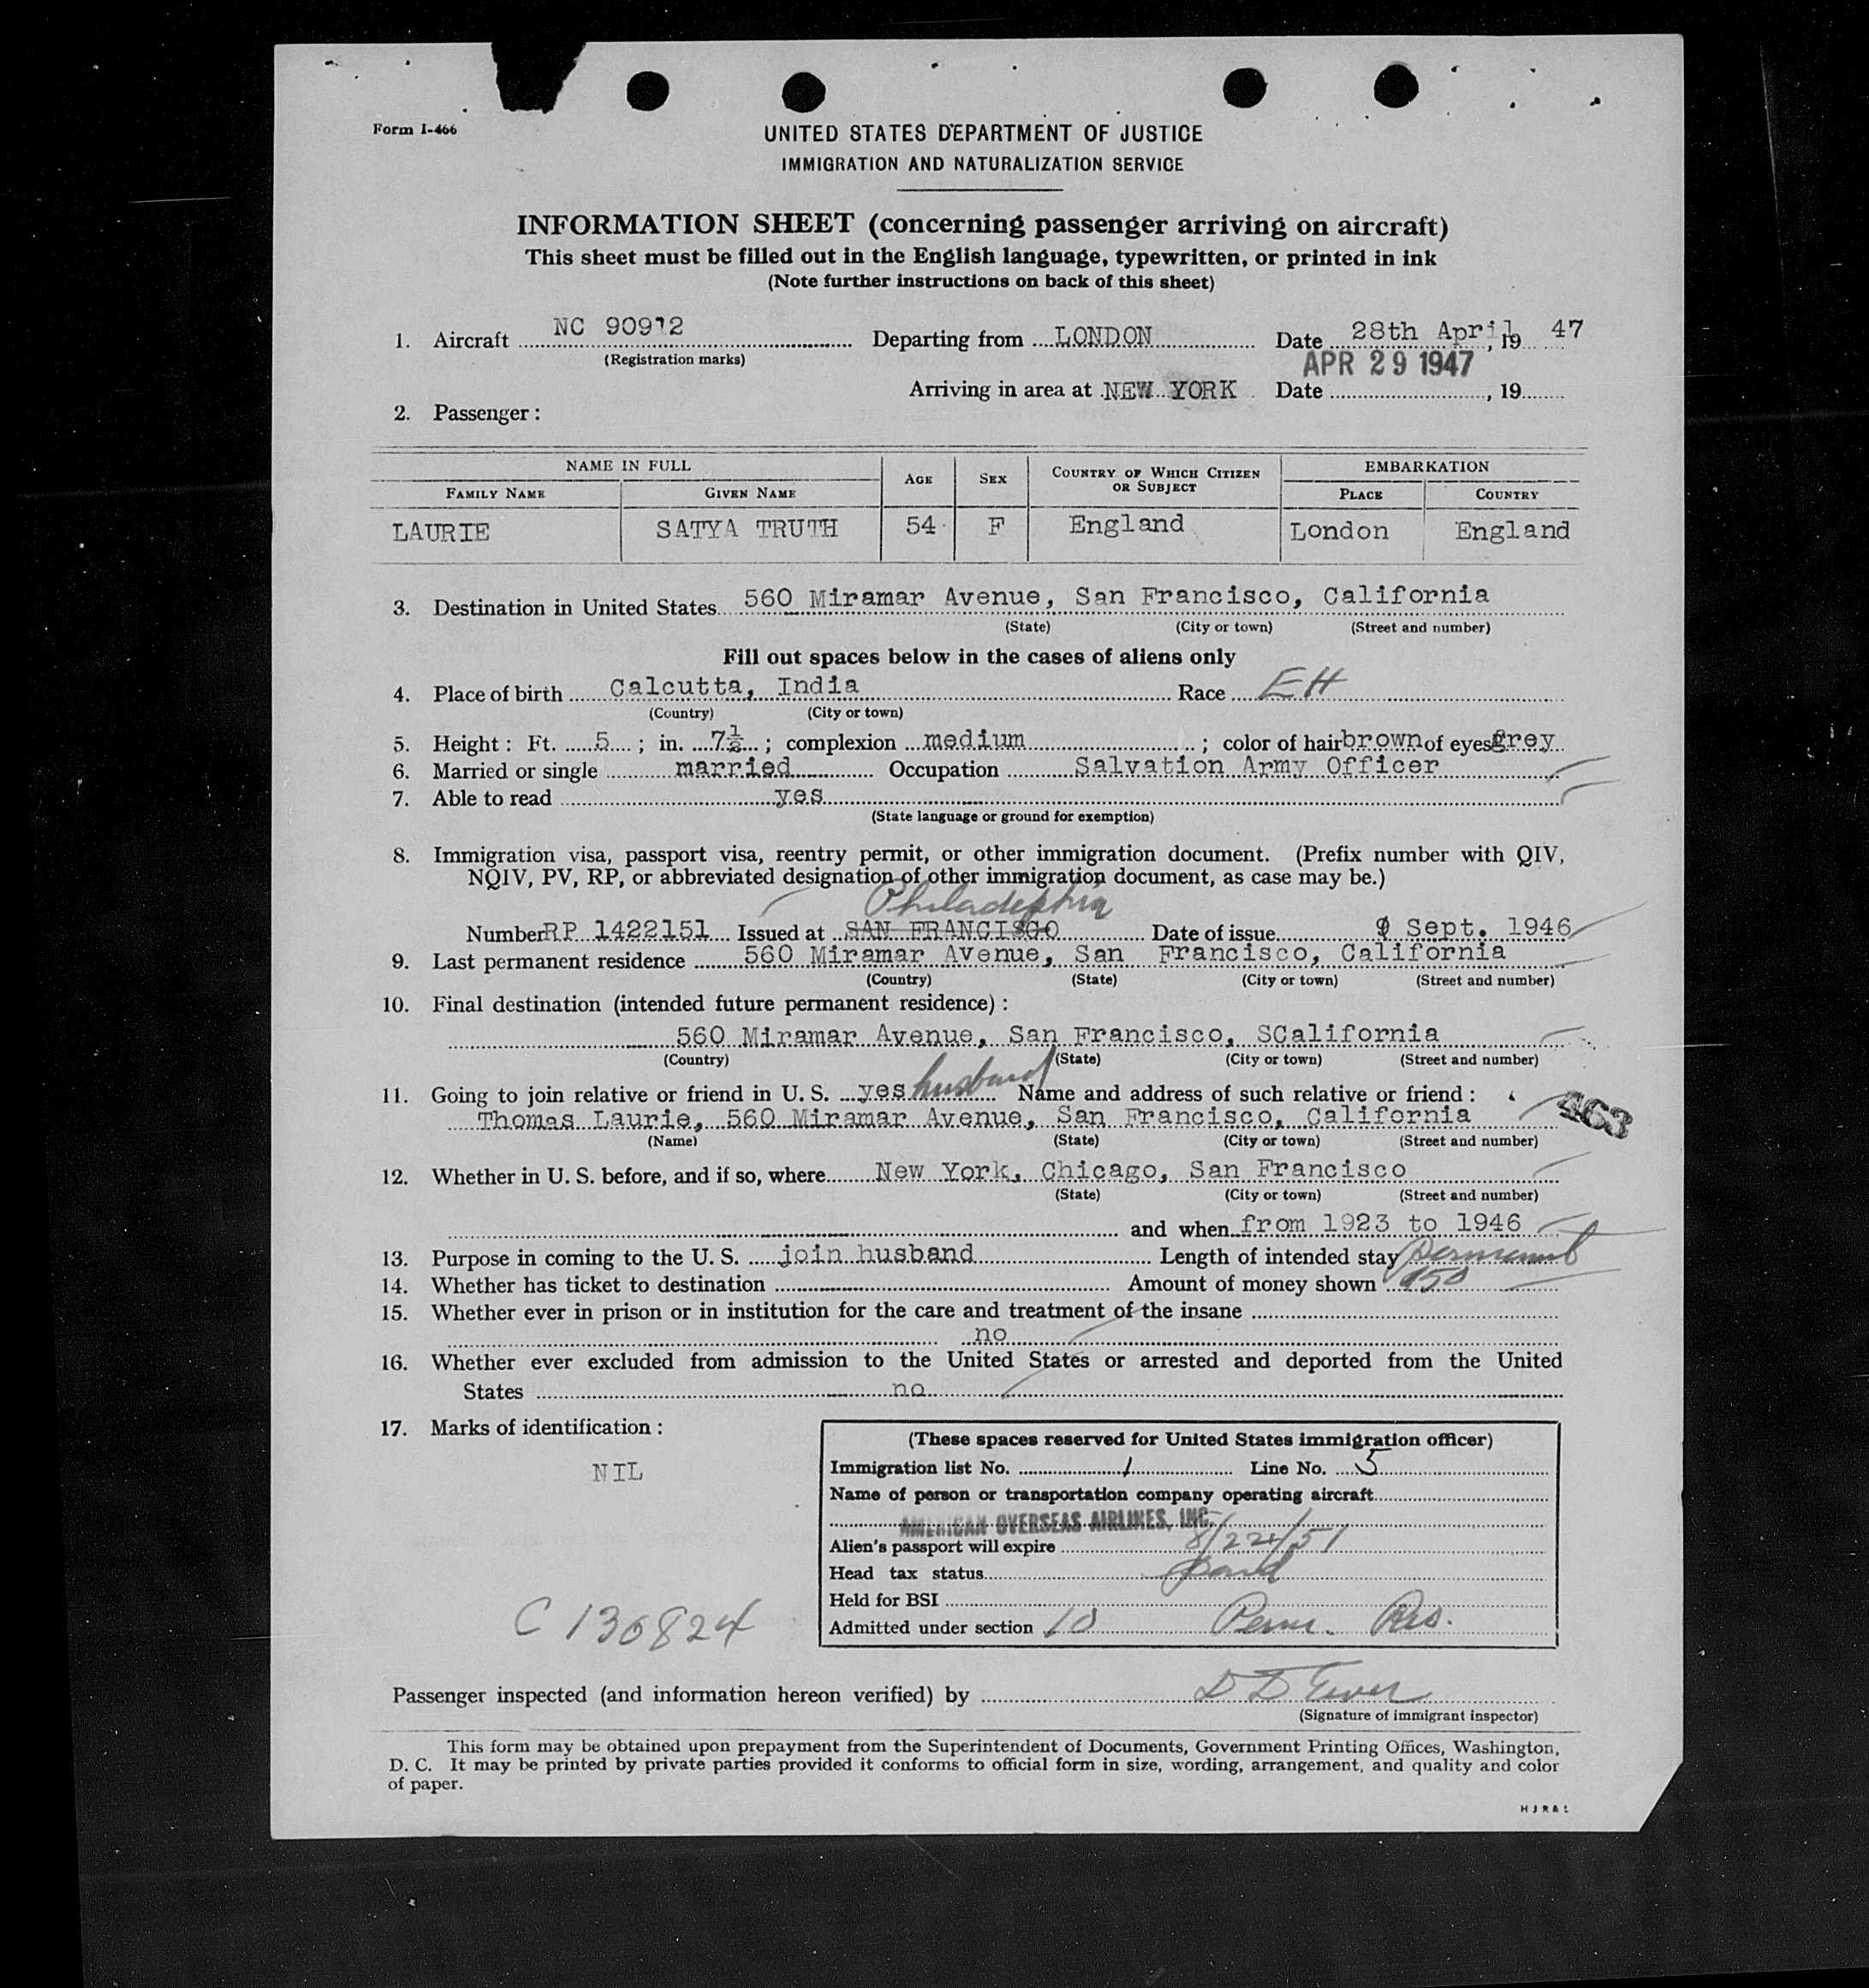 Form I-466
UNITED STATES DEPARTMENT OF JUSTICE
IMMIGRATION AND NATURALIZATION SERVICE
INFORMATION SHEET (concerning passenger arriving on aircraft)
This sheet must be filled out in the English language, typewritten, or printed in ink
(Note further instructions on back of this sheet)
1. Aircraft NC 90912 Departing from LONDON Date 28th April, 19 47
(Registration marks)
APR 29 1947
Arriving in area at NEW YORK Date , 19
2. Passenger:
NAME IN FULL AGE SEX COUNTRY OF WHICH CITIZEN OR SUBJECT EMBARKATION
FAMILY NAME GIVEN NAME PLACE COUNTRY
LAURIE SATYA TRUTH 54 F England London England
3. Destination in United States 560 Miramar Avenue, San Francisco, California
(State) (City or town) (Street and number)
Fill out spaces below in the cases of aliens only
4. Place of birth Calcutta, India Race EH
(Country) (City or town)
5. Height: Ft. 5 ; in. 7½ ; complexion medium ; color of hair brown of eyes grey
6. Married or single married Occupation Salvation Army Officer
7. Able to read yes
(State language or ground for exemption)
8. Immigration visa, passport visa, reentry permit, or other immigration document. (Prefix number with QIV,
NQIV, PV, RP, or abbreviated designation of other immigration document, as case may be.)
Philadephia
Number RP 1422151 Issued at SAN FRANCISCO Date of issue 9 Sept. 1946
9. Last permanent residence 560 Miramar Avenue, San Francisco, California
(Country) (State) (City or town) (Street and number)
10. Final destination (intended future permanent residence):
560 Miramar Avenue, San Francisco, SCalifornia
(Country) (State) (City or town) (Street and number)
11. Going to join relative or friend in U. S. yes husband Name and address of such relative or friend:
Thomas Laurie, 560 Miramar Avenue, San Francisco, California 463
(Name) (State) (City or town) (Street and number)
12. Whether in U. S. before, and if so, where New York, Chicago, San Francisco
(State) (City or town) (Street and number)
and when from 1923 to 1946
13. Purpose in coming to the U. S. join husband Length of intended stay permanent
14. Whether has ticket to destination Amount of money shown 150
15. Whether ever in prison or in institution for the care and treatment of the insane
no
16. Whether ever excluded from admission to the United States or arrested and deported from the United
States no
17. Marks of identification:
NIL
(These spaces reserved for United States immigration officer)
Immigration list No. 1 Line No. 5
Name of person or transportation company operating aircraft
AMERICAN OVERSEAS AIRLINES, INC.
Alien's passport will expire 8/22/51
Head tax status paid
Held for BSI
Admitted under section 10 Perm. Res.
C 130824
Passenger inspected (and information hereon verified) by D D
(Signature of immigrant inspector)
This form may be obtained upon prepayment from the Superintendent of Documents, Government Printing Offices, Washington,
D. C. It may be printed by private parties provided it conforms to official form in size, wording, arrangement, and quality and color
of paper.